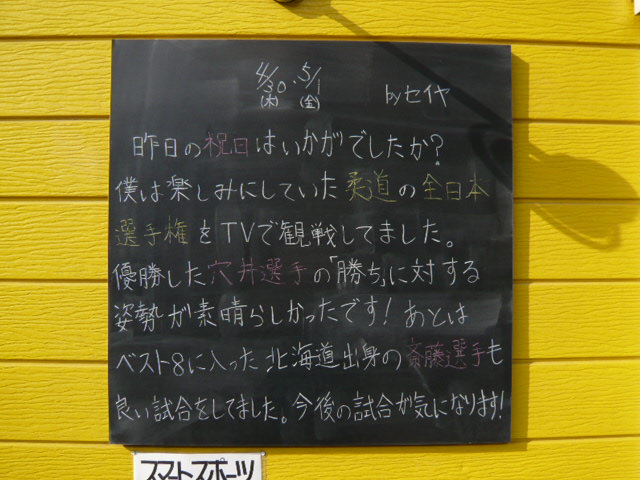 4/30・5/1
(木) (金)
byセイヤ
昨日の祝日はいかがでしたか?
僕は楽しみにしていた柔道の全日本
選手権をTVで観戦してました。
優勝した穴井選手の「勝ち」に対する
姿勢が素晴らしかったです!あとは
ベスト8に入った北海道出身の斎藤選手も
良い試合をしてました。今後の試合が気になります!
スマートスポーツ